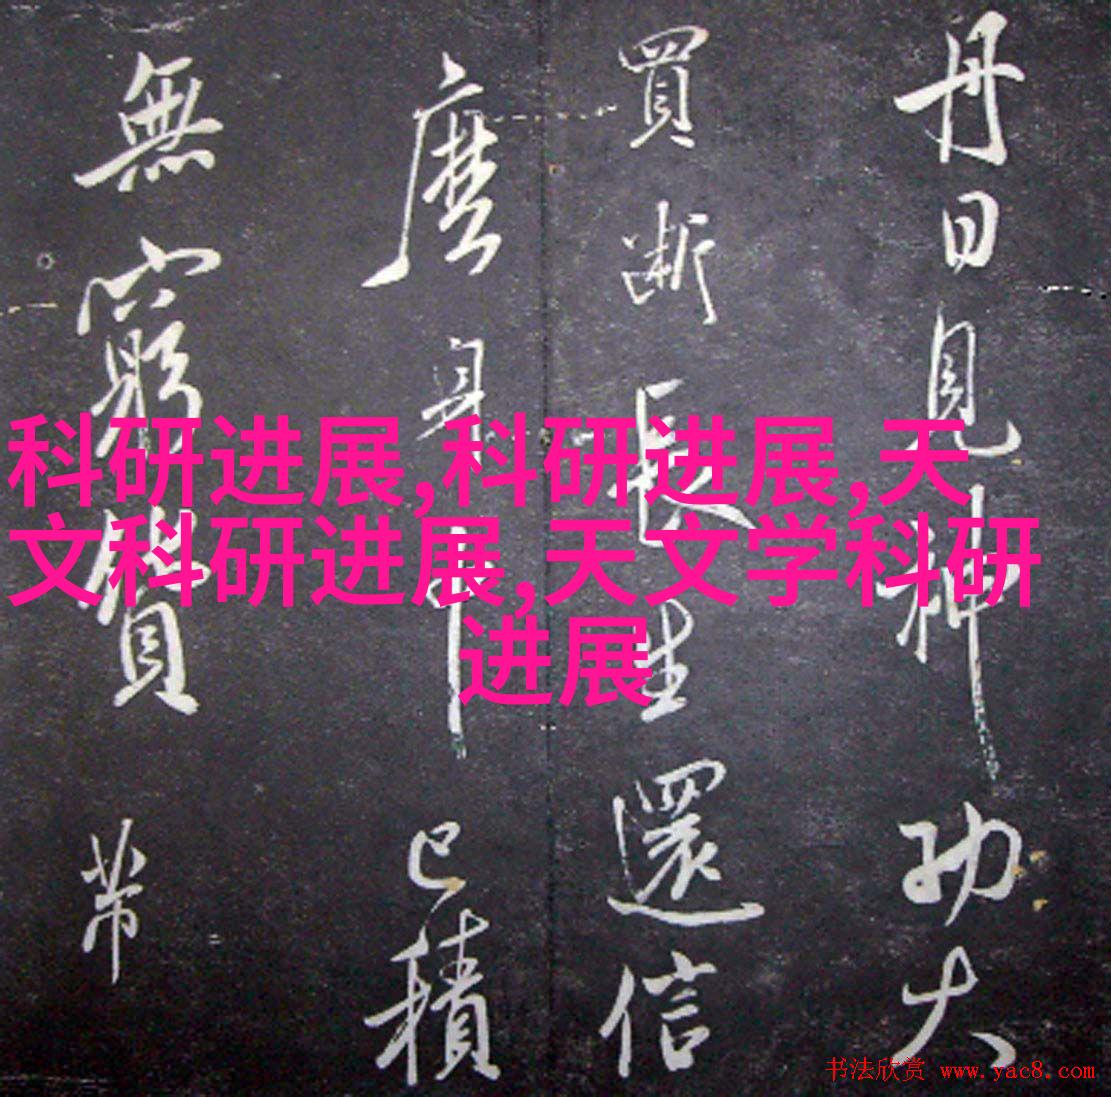 丹日見神功大
買斷長生還信
麼身中已積
無窮貨带
科研进展,科研进展,天
文科研进展,天文学科研
进展
书法欣赏 www.yac8.com